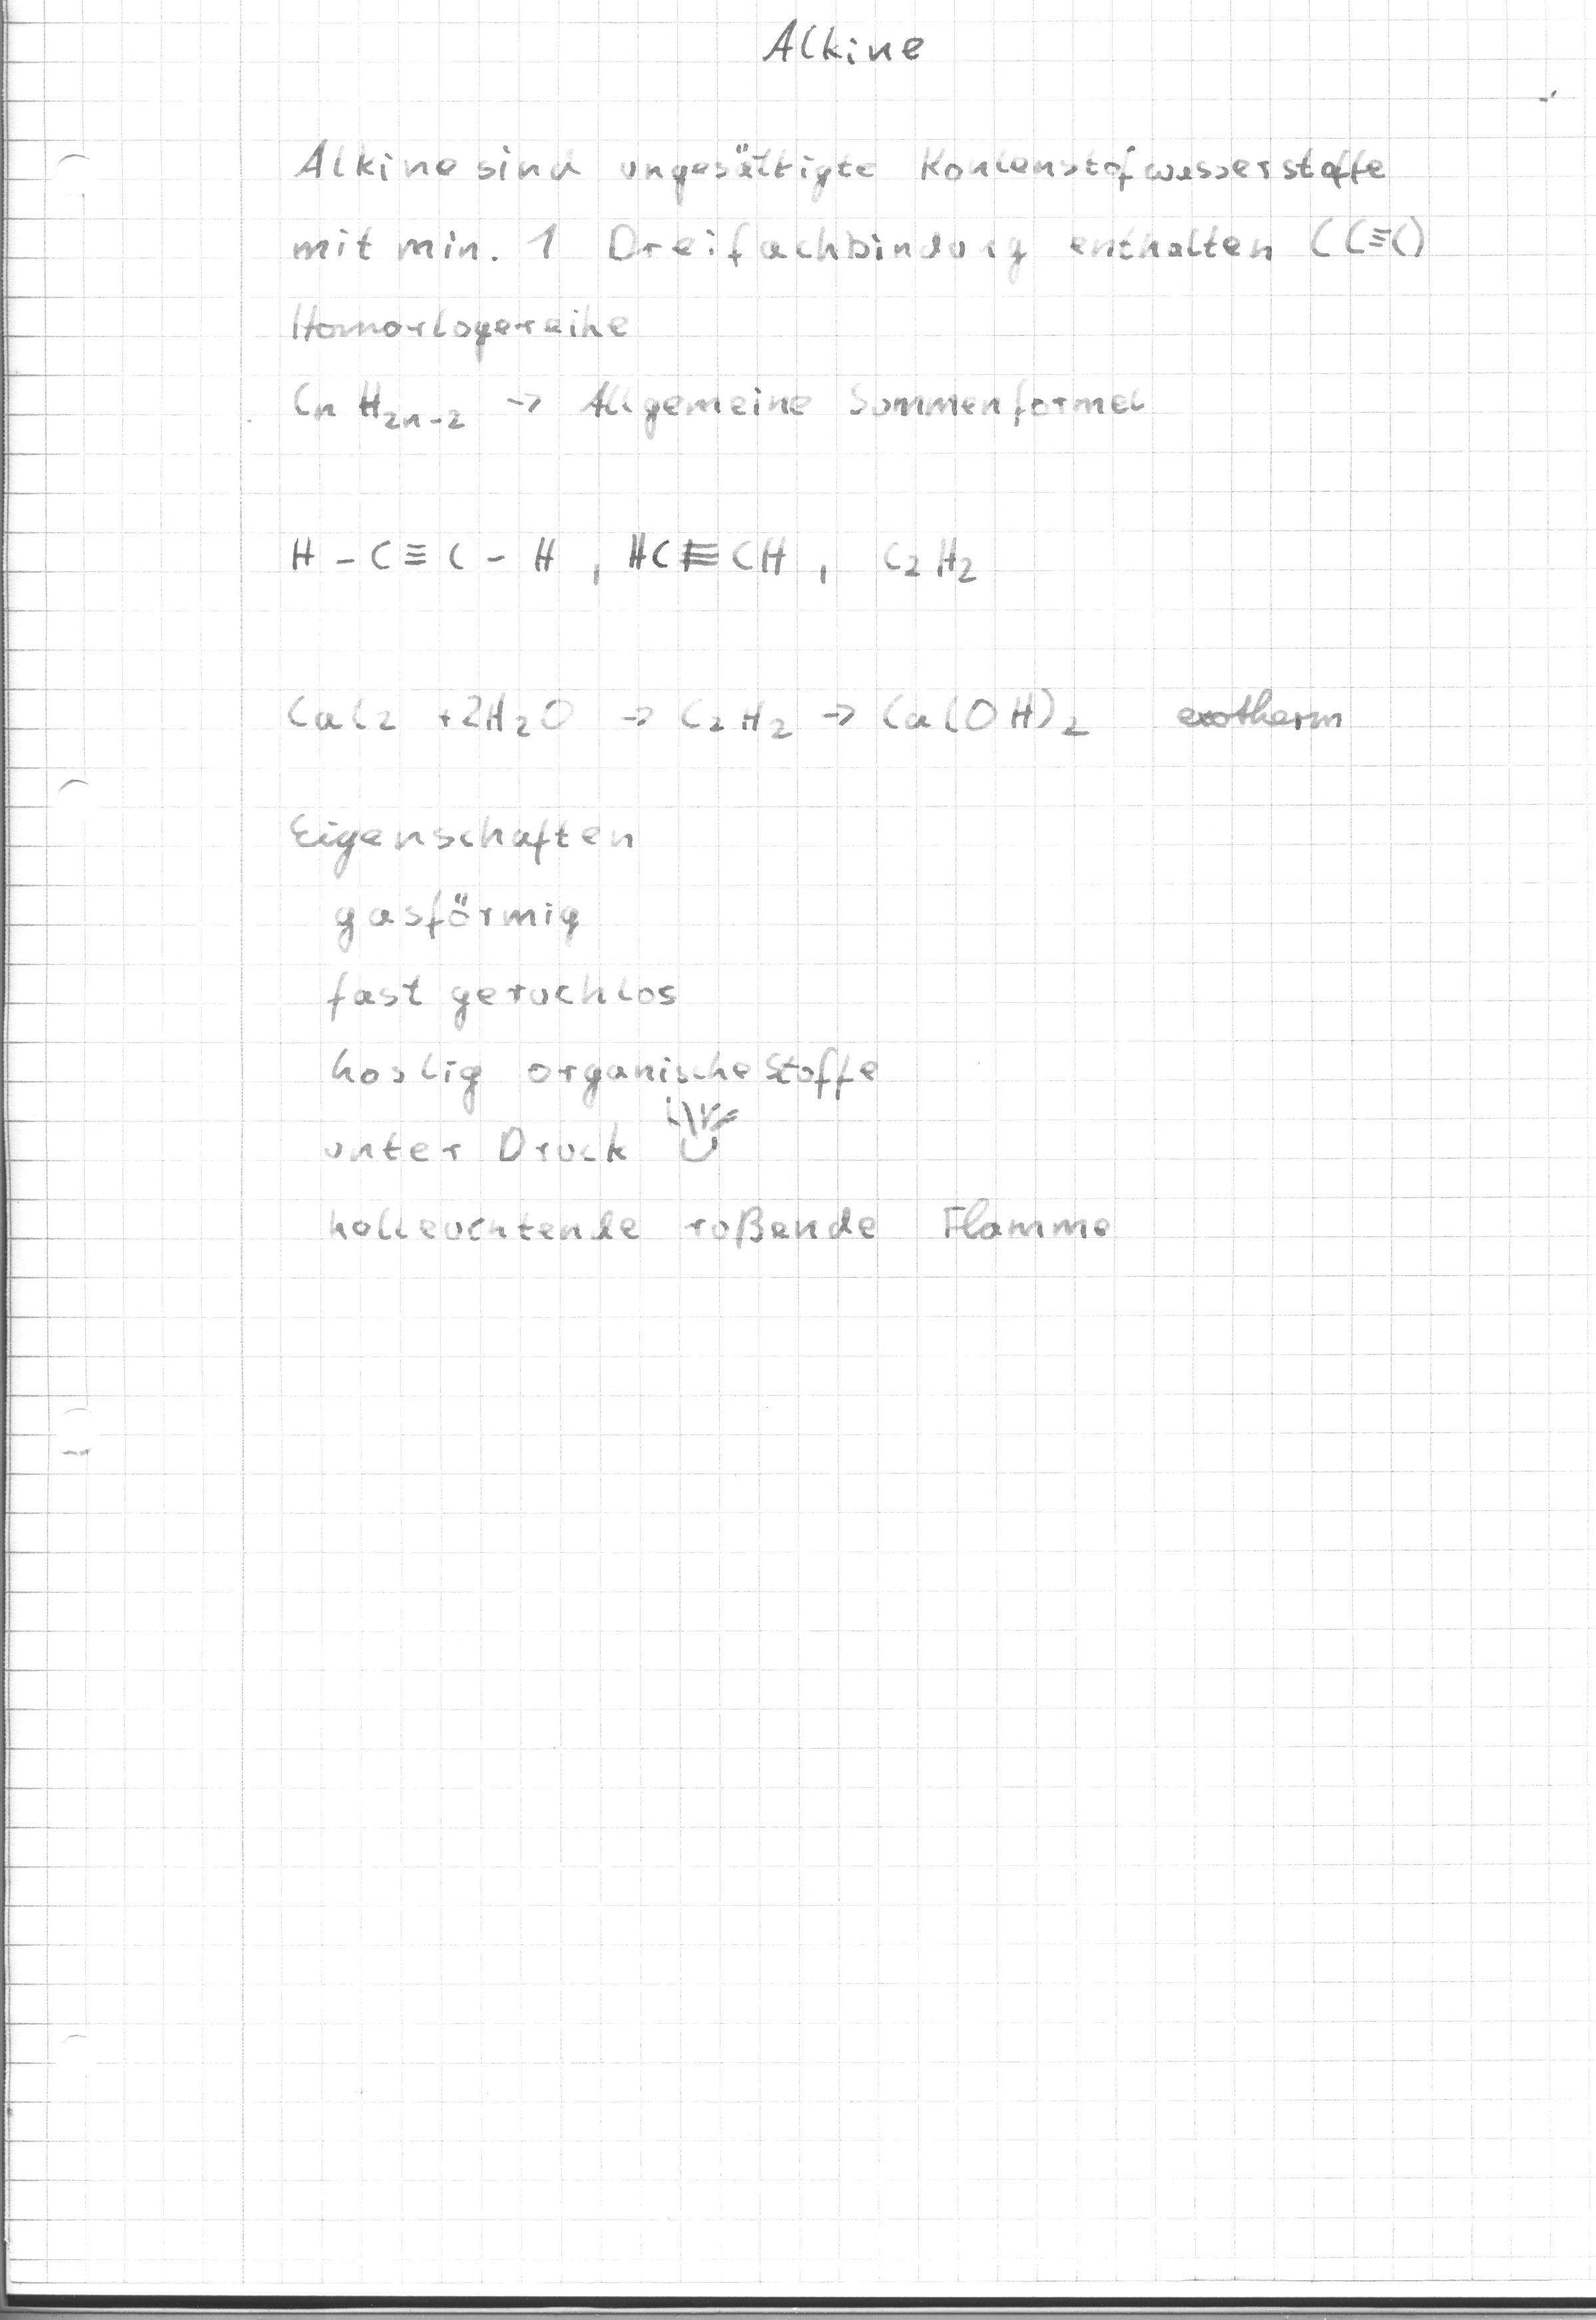 Alkine
Alkine sind ungesättigte Kohlenstofwasserstoffe
mit min. 1 Dreifachbindung enthalten (C≡C)
Homorlogereihe
CnH2n-2 → Allgemeine Summenformel
H - C ≡ C - H , HC≡CH , C2H2
CaC2 + 2H2O → C2H2 → Ca(OH)2 exotherm
Eigenschaften
gasförmig
fast geruchlos
organische Stoffe
unter Druck
helleuchtende rußende Flamme